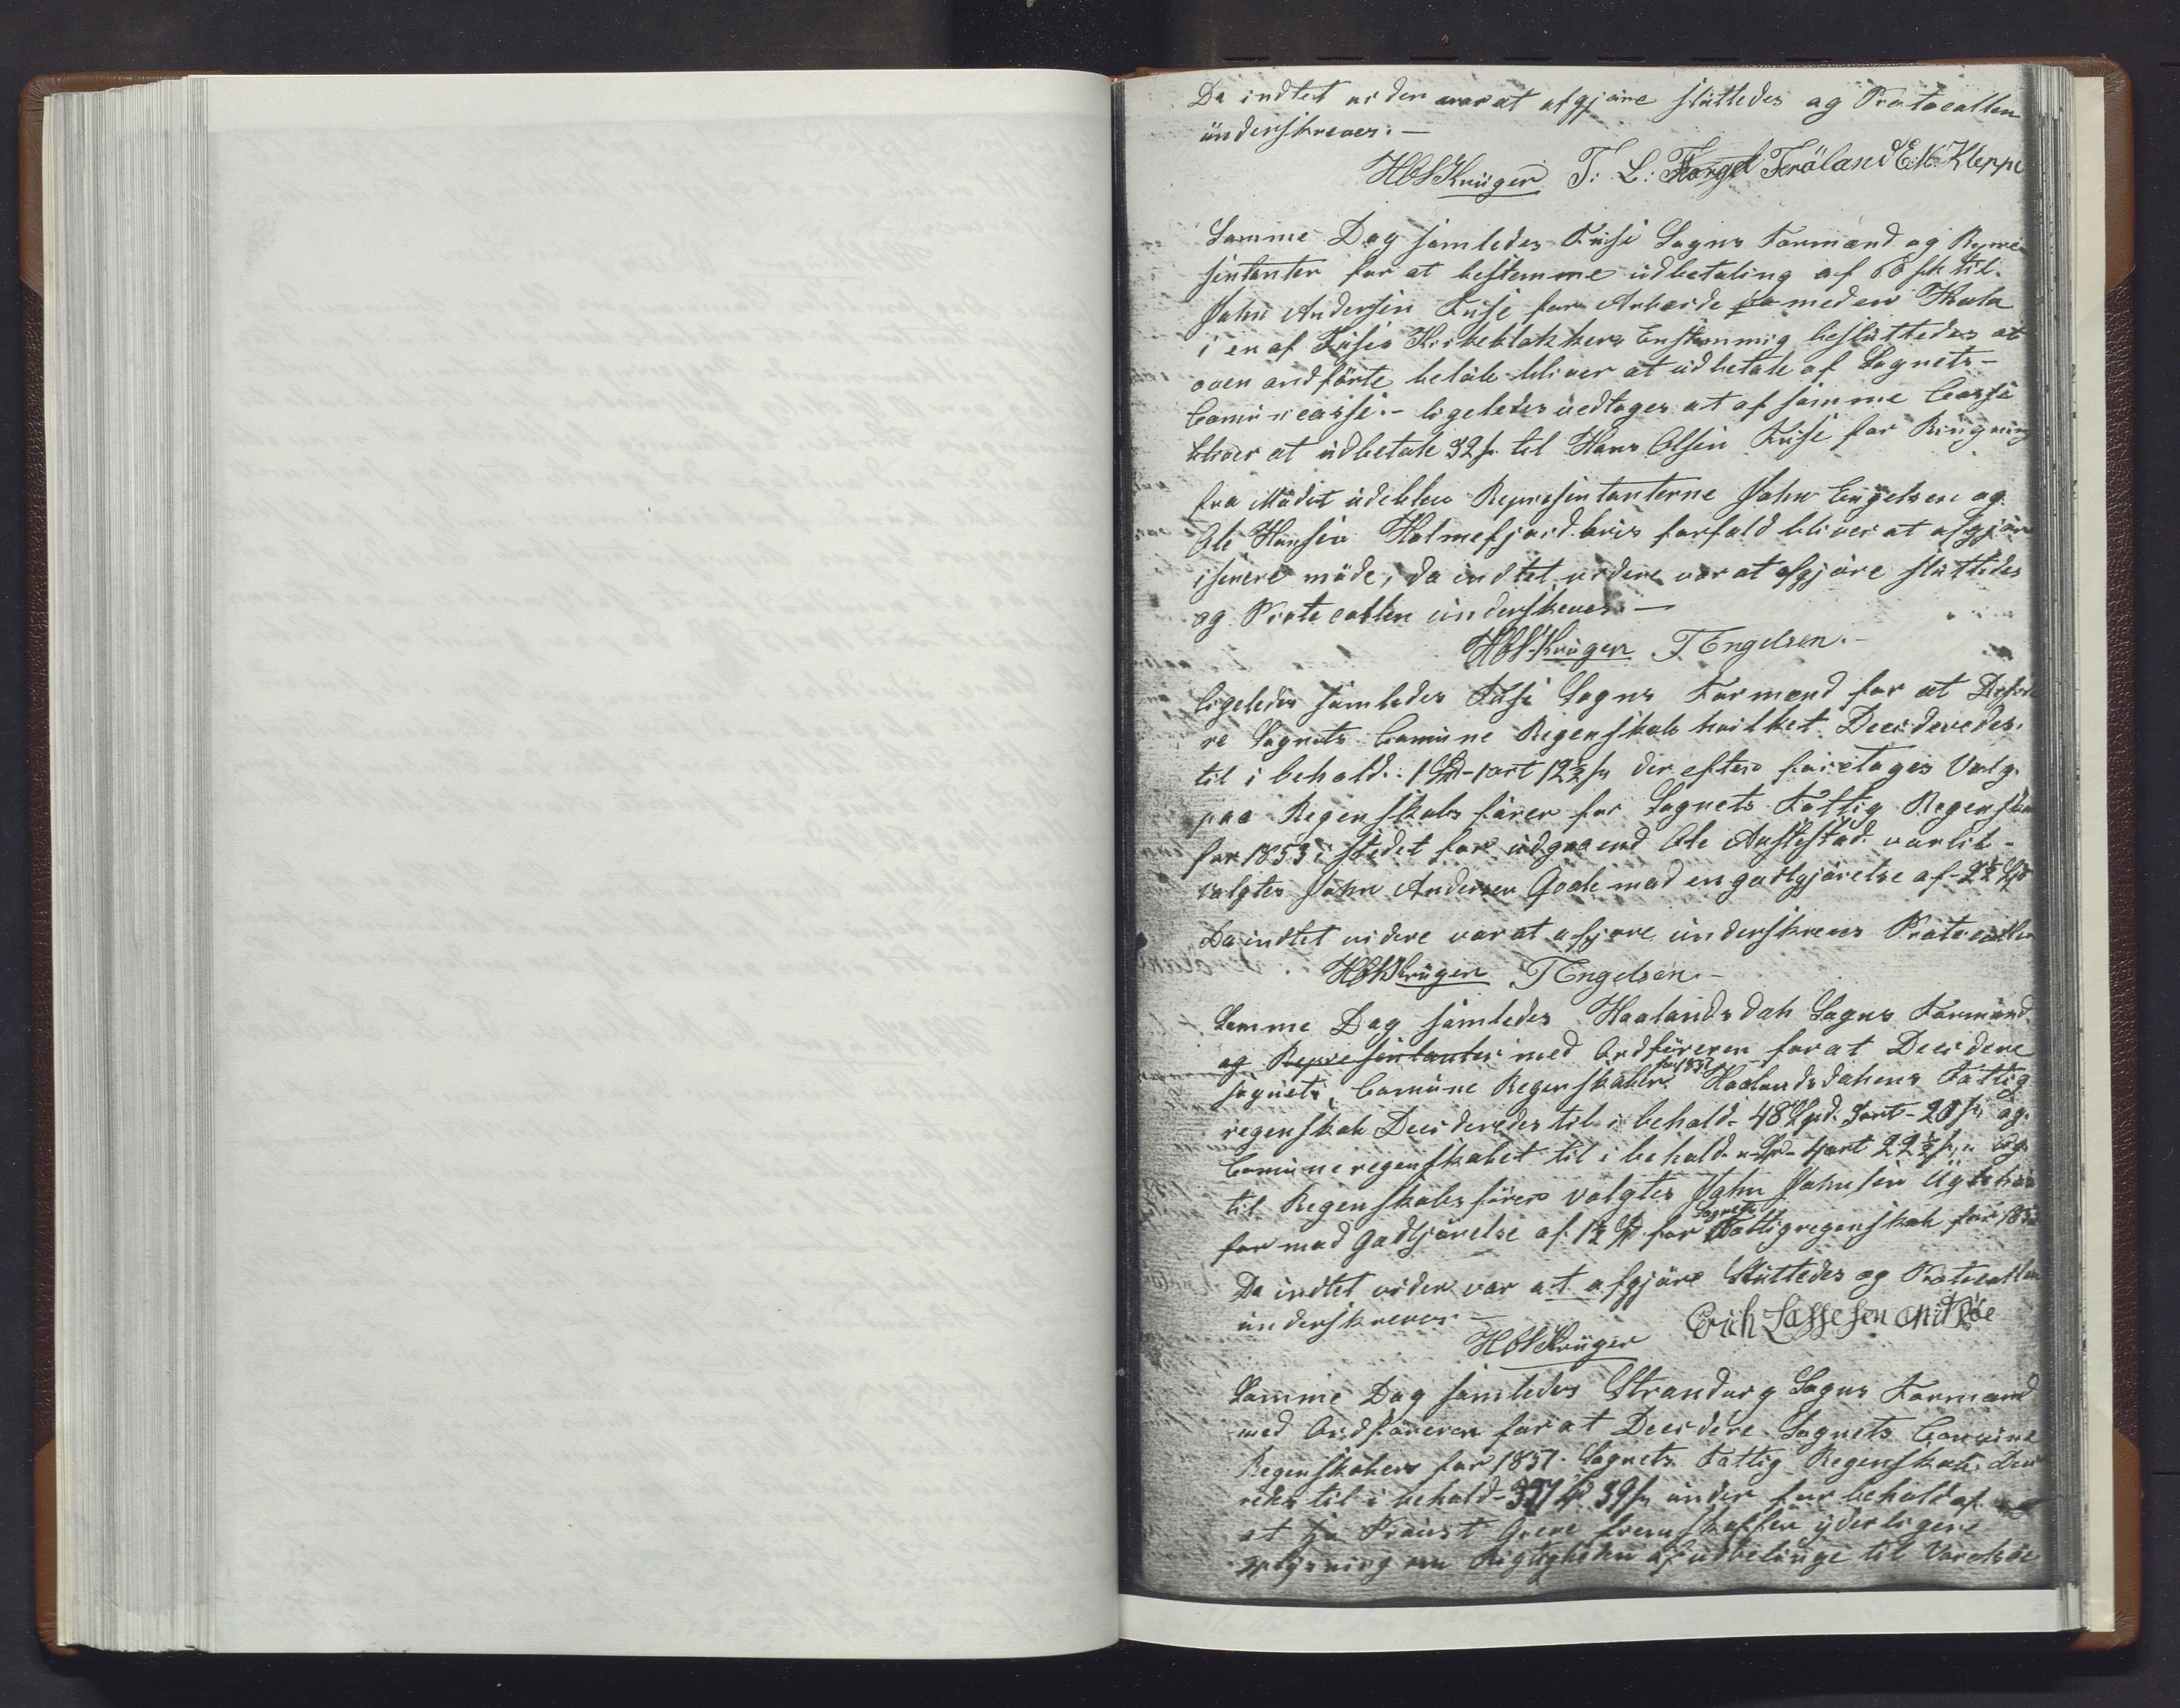 Da indtet vider var at afgjøre sluttedes og Protocollen
underskreves. —
HCSKrüger T: L: Torgel Fròland E. N. Kleppe
Samme Dag samledes Fuse Sogns Formænd og Repre
sintanter for at bestemme udbetaling af 60 sk til
John Andersen Fuse for Arbeide med en
i en af Fuses Kirkeklokker Enstemmig besluttedes at
oven andførte beløb bliver at udbetale af Sognets
Comunecasse. - ligeledes vedtoges at af samme Casse
bliver at udbetale 32 s til Hans Olsen Fuse for Ringning
fra Mødet udeblev Represintanterne John Engelsen og
Ole Hansen Holmefjord. hvis forfald bliver at afgjøre
i senere møde, da indtet videre var at afgjøre sluttedes
og Protocollen underskreves. —
HCSKrüger T Engelsen. -
ligeledes samledes Fuse Sogns Formænd for at
re Sognets Comune Regenskab hvilket Deciderede
til i behold: 1 Spd - 1 ort 12½ s, der efter foretoges Valg
paa Regenskabsfører for Sognets Fattig Regenskab
for 1853 i stedet for udgaaend Ole
valgtes John Andersen Gode mod en godtgjørelse af - 2½ Spd
Da indtet videre var at afjøre underskreves Protocollen
HCSKrüger T Engelsen. -
Samme Dag samledes Haalandsdals Sogns Formænd
og Represintanter med Ordføreren for at Decidere
sognets, Comune Regenskaber for 1851 Haalandsdalens Fattig
regenskab Decideredes til i behold - 48 Spd. 3 ort - 20 s, og
Comuneregenskabet til i behold - " Spd - 4 ort 22½ s, " og
til Regenskabsfører valgtes John Johnsen
for mod Godtjørelse af 1½ Spd for Sognets Fattigregenskab for 185
Da indtet vider var at afgjøre Sluttedes og Protocollen
underskreves. —
HCSKrüger Erich Lassesen
Samme Dag samledes Strandvig Sogns Formænd
med Ordføreren for at Decidere Sognets Comune
Regenskaber for 1851. Sognets Fattig Regenskab
redes til i behold - 371 Spd 39 s, under forbehold af
at Provst Greve fremskaffer yderligere
oplysning om Rigtigheden af udbetalinge til Varaldsøe